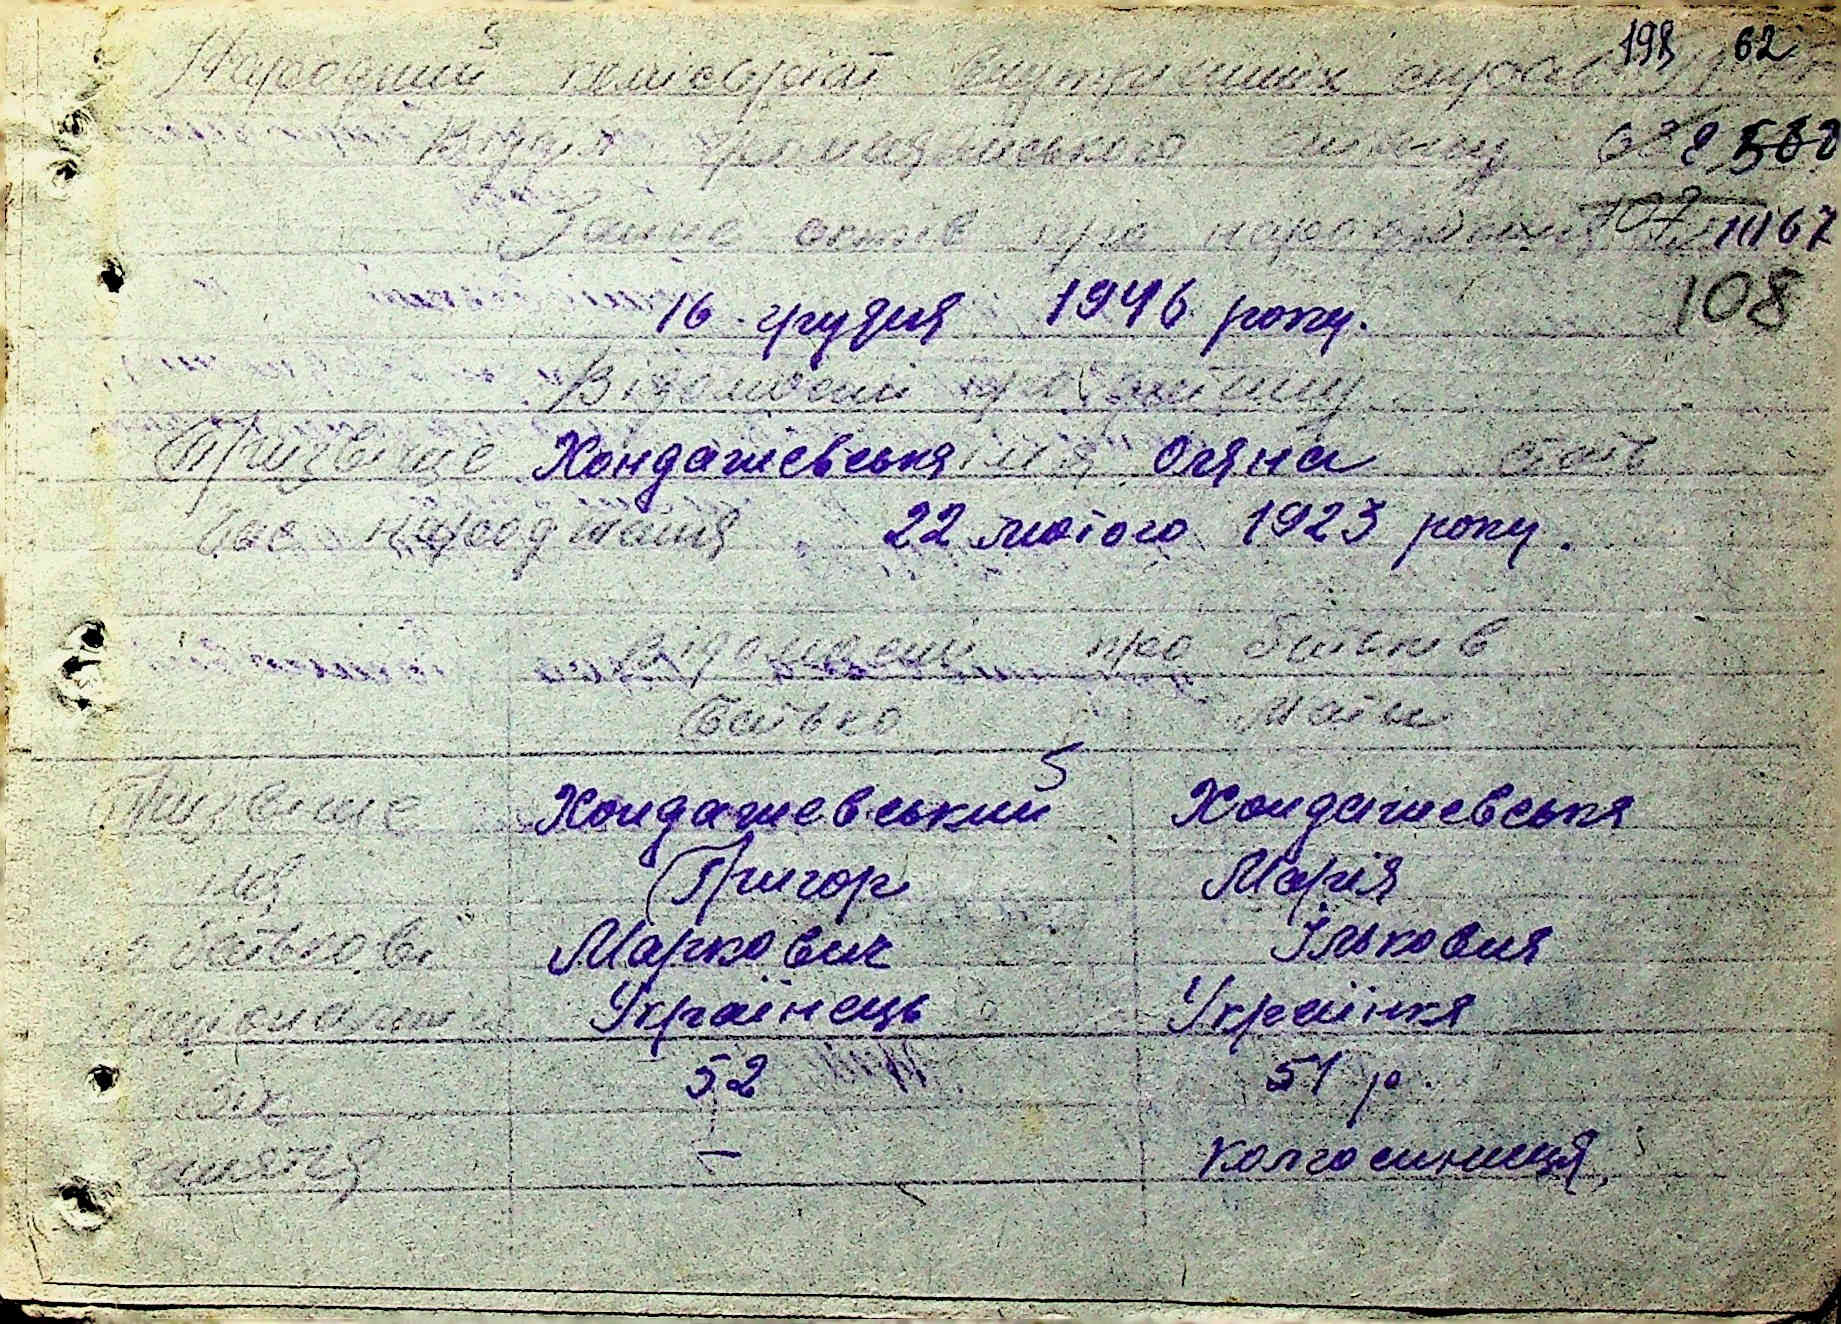 198 62
Народний комісаріат внутрішніх справ
Відділ громадянського стану
Запис актів про народження 67
108
16 грудня 1946 року.
Відомості про дитину
Призвіще Хондажевська імя Оляна стать
Час народження 22 лютого 1923 року.
Відомості про батьків
Батько Мати
Призвіще Хондажевський Хондажевська
імя Григор Марія
по батькові Маркович Ільковна
національн Українець Українка
Вік 52 51 р.
заняття – колгоспниця